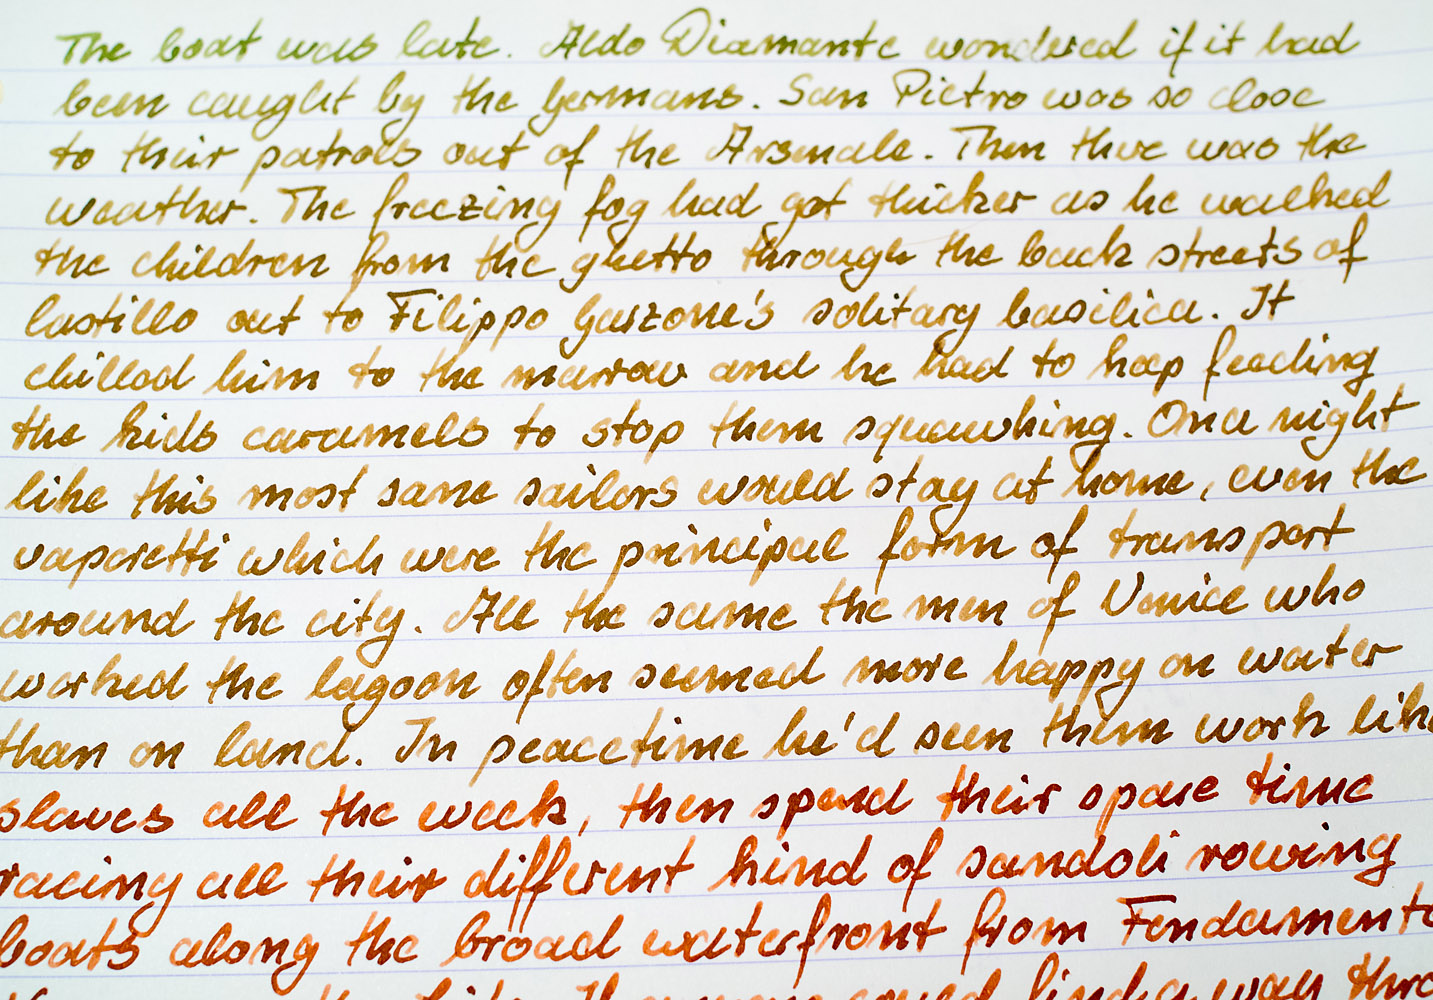 The boat was late. Aldo Diamante wondered if it had
been caught by the Germans. San Pietro was so close
to their patrols out of the Arsenale. Then there was the
weather. The freezing fog had got thicker as he walked
the children from the ghetto through the back streets of
Castillo out to Filippo Garzone's solitary basilica. It
chilled him to the marrow and he had to keep feeding
the kids caramels to stop them squawking. On a night
like this most sane sailors would stay at home, even the
vaporetti which were the principal form of transport
around the city. All the same the men of Venice who
worked the lagoon often seemed more happy on water
than on land. In peacetime he'd seen them work like
slaves all the week, then spend their spare time
racing all their different kind of sandoli rowing
boats along the broad waterfront from Fondamenta